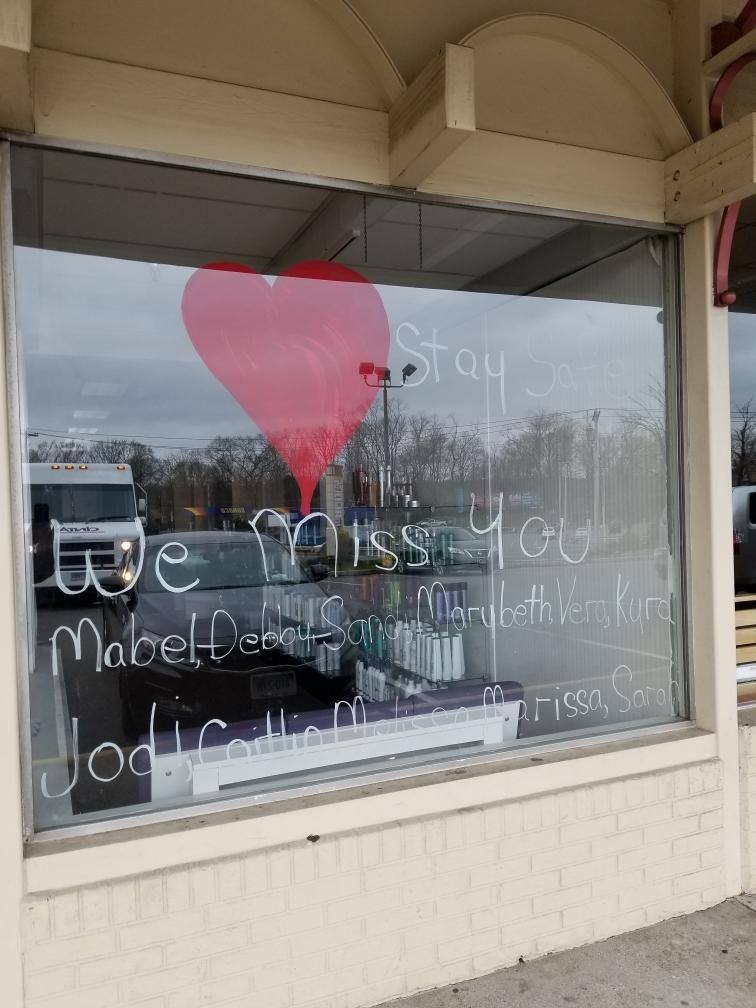 Stay Safe
We Miss You
Mabel, Debby, Sandi, Marybeth, Vera, Kyra
Jodi, Caitlin, Melissa, Marissa, Sarah